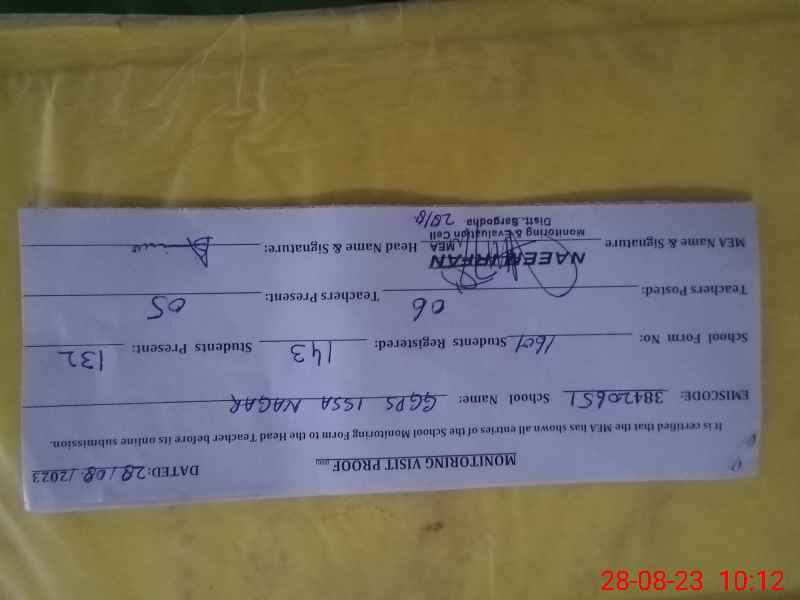 MONITORING VISIT PROOF
DATED: 28/08/2023
It is certified that the MEA has shown all entries of the School Monitoring Form to the Head Teacher before its online submission.
EMISCODE: 38420651 School Name: GGPS ISSA NAGAR
School Form No: 1601 Students Registered: 143 Students Present: 132
Teachers Posted: 06 Teachers Present: 05
MEA Name & Signature Head Name & Signature:
NAEEM IRFAN
MEA
Monitoring & Evaluation Cell
Distt. Sargodha
28/8
28-08-23 10:12